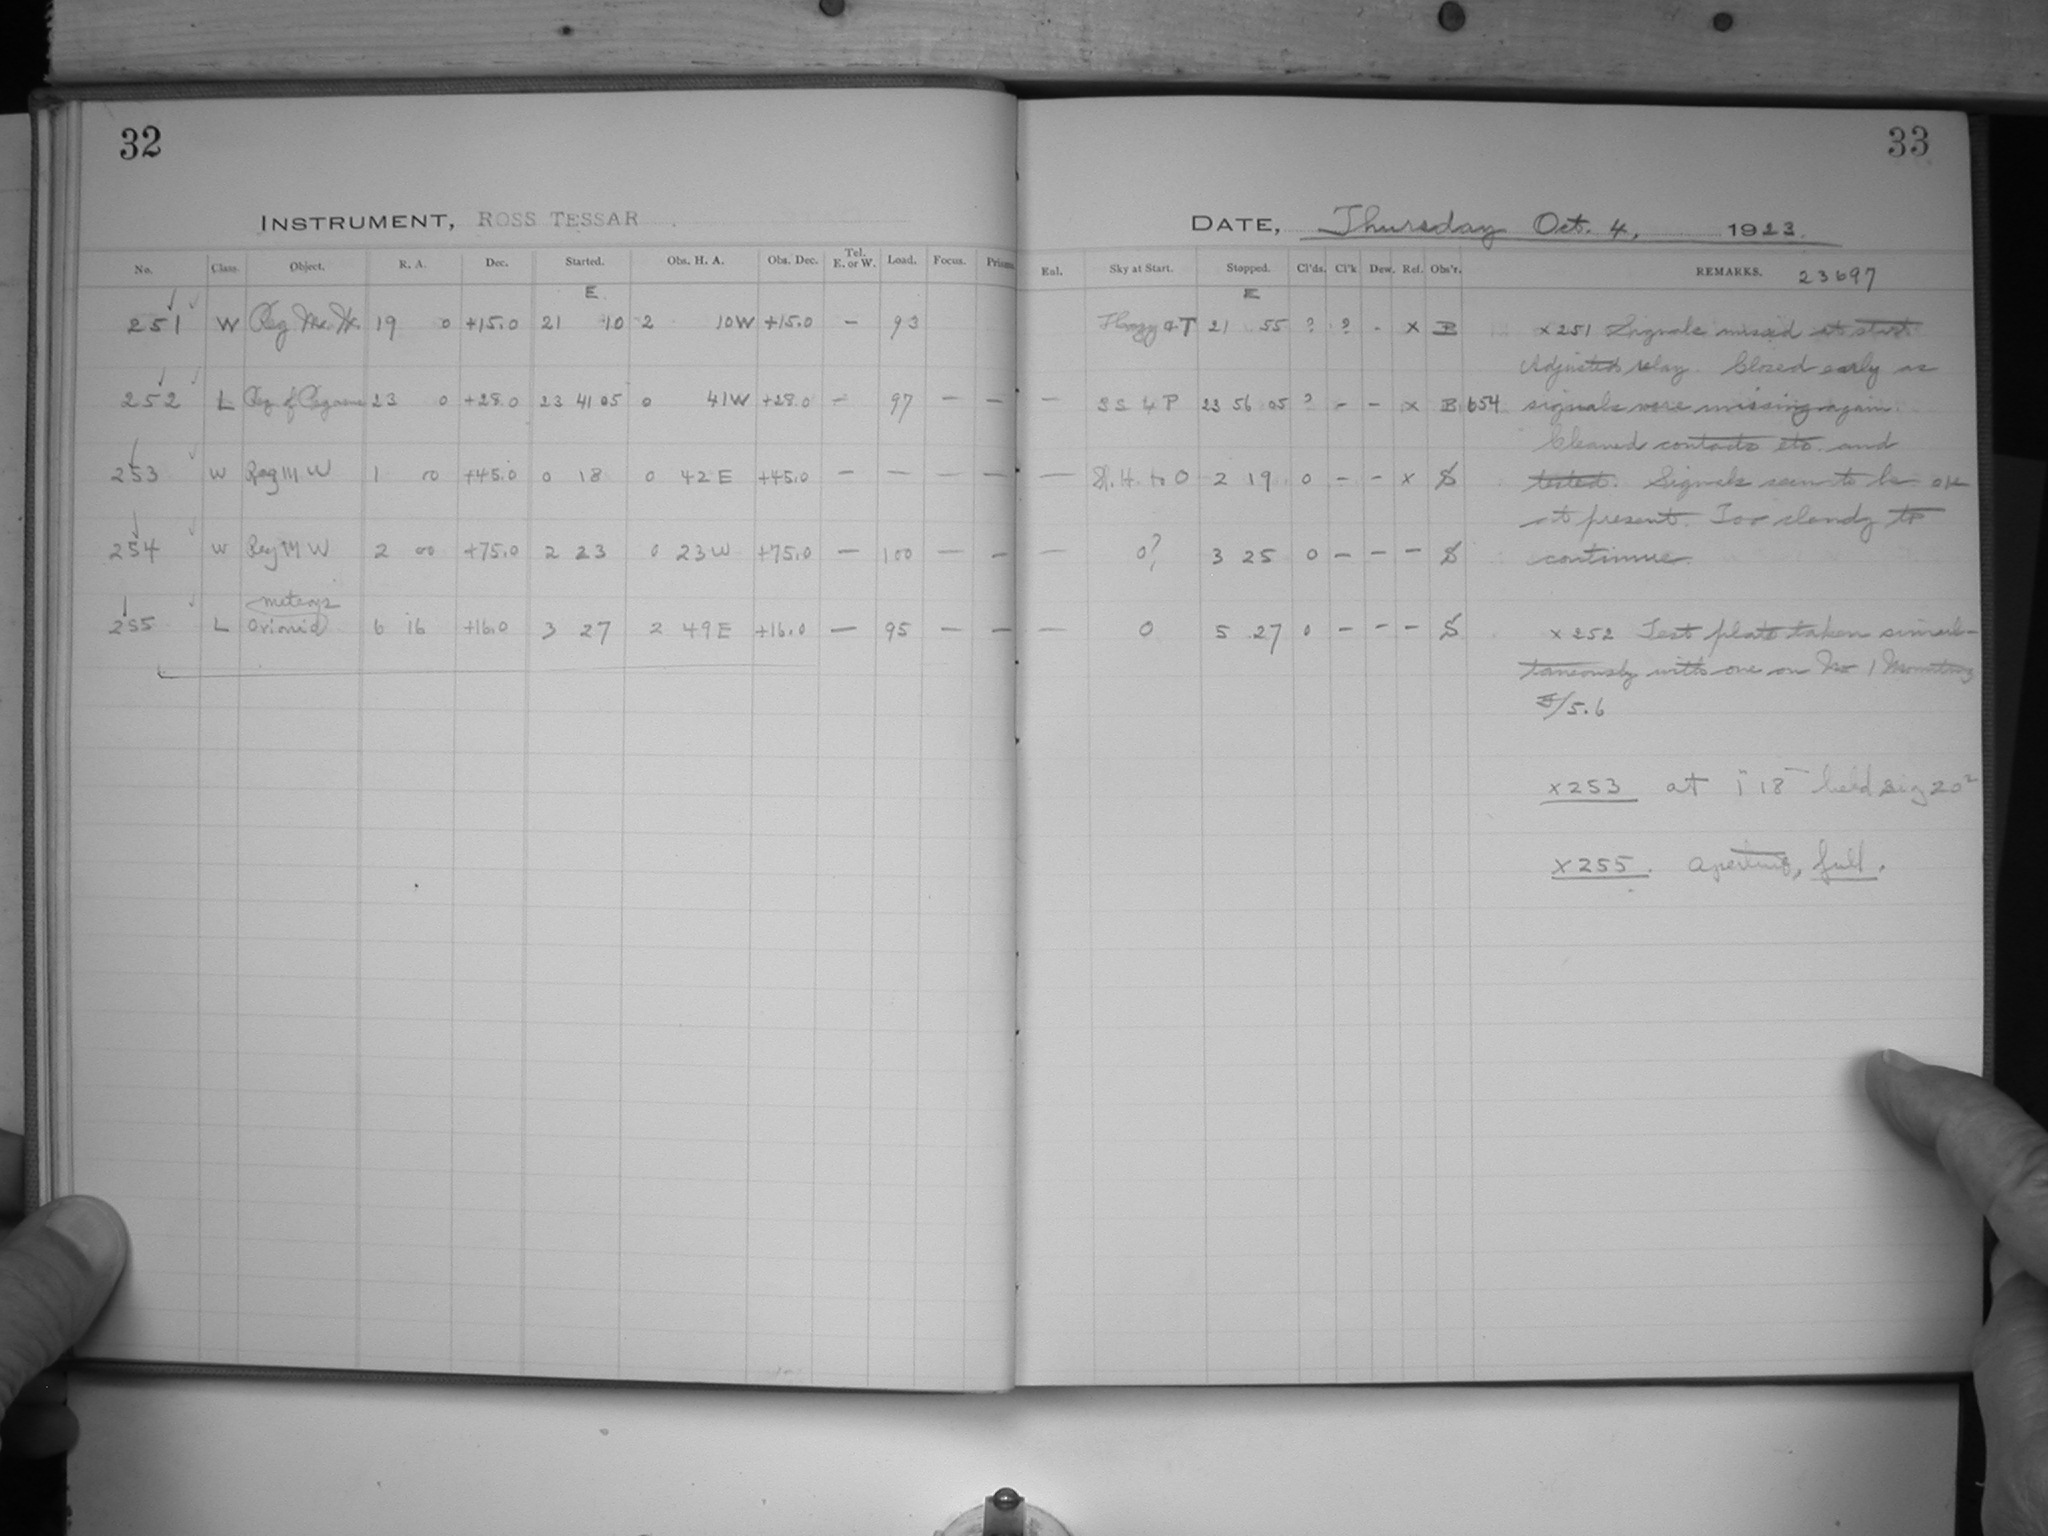 32
INSTRUMENT, ROSS TESSAR
No. Class. Object. R. A. Dec. Started. Obs. H. A. Obs. Dec. Tel. E. or W. Load. Focus. Prism.
E
251 W Reg M. W. 19 0 +15.0 21 10 2 10W +15.0 – 93
252 L Reg of Pegasus 23 0 +28.0 23 41 05 0 41W +28.0 – 97 – –
253 W Reg M W 1 00 +45.0 0 18 0 42 E +45.0 – – – –
254 W Reg M W 2 00 +75.0 2 23 0 23 W +75.0 – 100 – –
meteors
255 L Orionid 6 16 +16.0 3 27 2 49 E +16.0 – 95 – –
33
DATE, Thursday Oct. 4, 1923.
Enl. Sky at Start. Stopped. Cl'ds. Cl'k Dew. Ref. Obs'r. REMARKS. 23697
E
Hazy 21 55 ? ? - x B
– 23 56 05 ? – – x B 654
– H. to 0 2 19 0 – – x S
– 0? 3 25 0 – – – S
– 0 5 27 0 – – – S
x 251 Signals missed at start.
Adjusted relay. Closed early as
signals were missing again.
Cleaned contacts etc. and
tested. Signals seem to be OK
at present. Too cloudy to
continue.
x 252 Test plate taken simul-
taneously with one on No 1 Mounting
F/5.6
x 253 at 18 held sig 20
x 255. aperture, full.